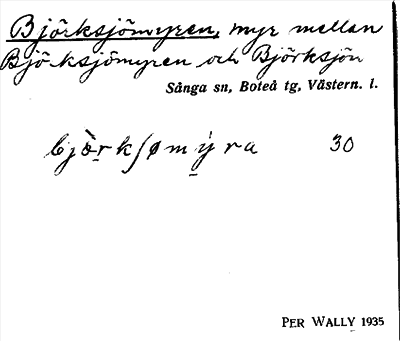 Björksjömyren, myr mellan
Björksjömyren och Björksjön
Sånga sn, Boteå tg, Västern. l.
bjò̱rkʃøm̱ýra 30
PER WALLY 1935